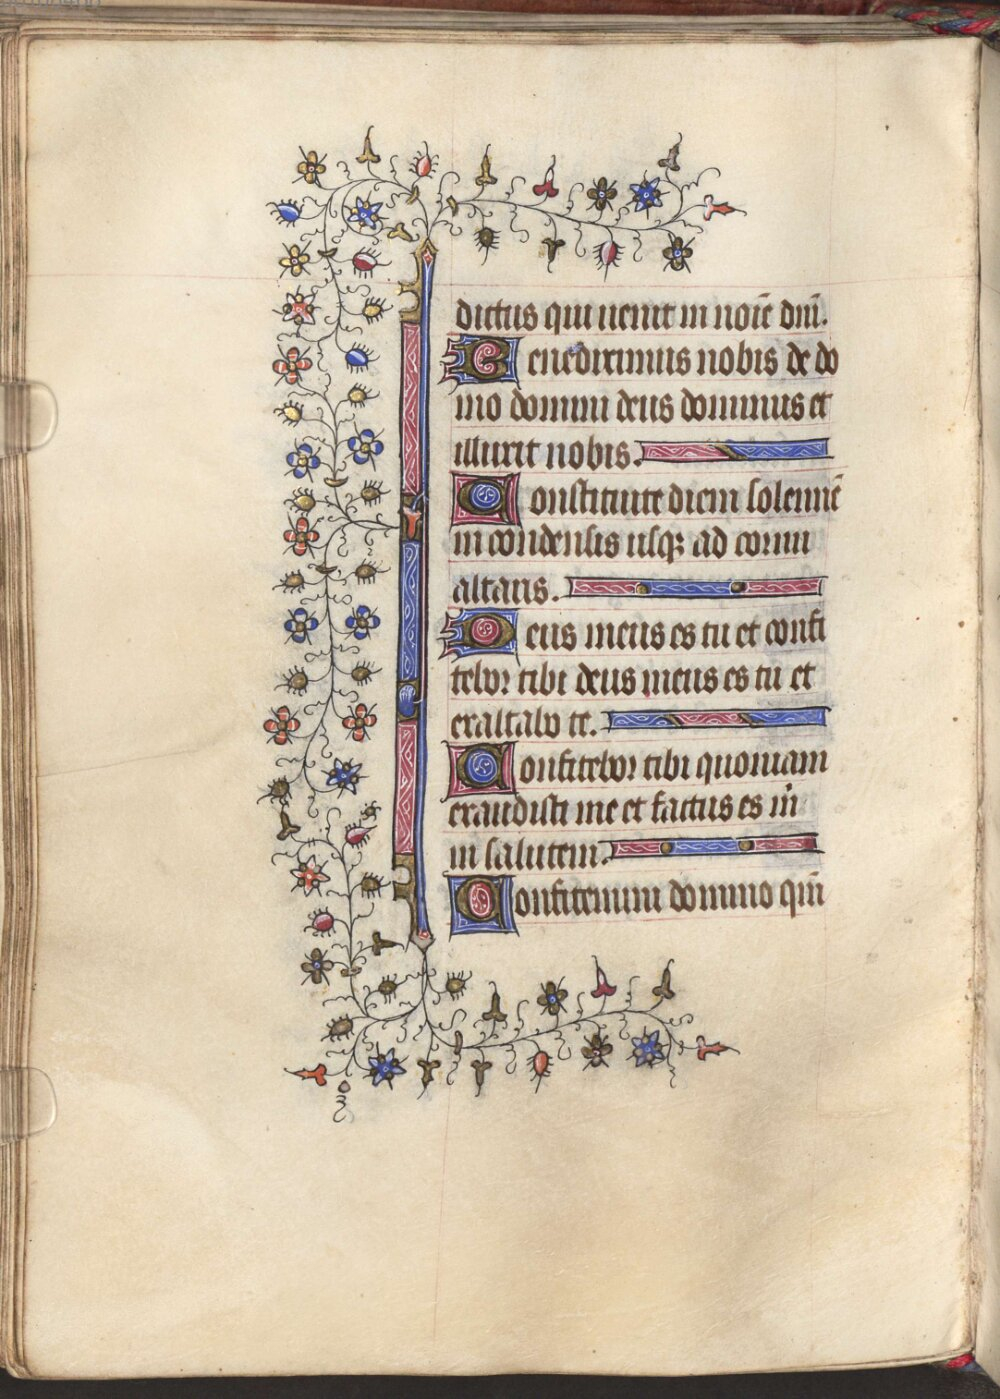 dictus qui uenit in noīe dn̄i.
Benediximus nobis de do
mo domini deus dominus et
illuxit nobis.
Constituite diem solennē
in condensis usqꝫ ad cornu
altaris.
Deus meus es tu et confi
tebor tibi deus meus es tu et
exaltabo te.
Confitebor tibi quoniam
exaudisti me et factus es m̄
in salutem.
Confitemini domino qm̄